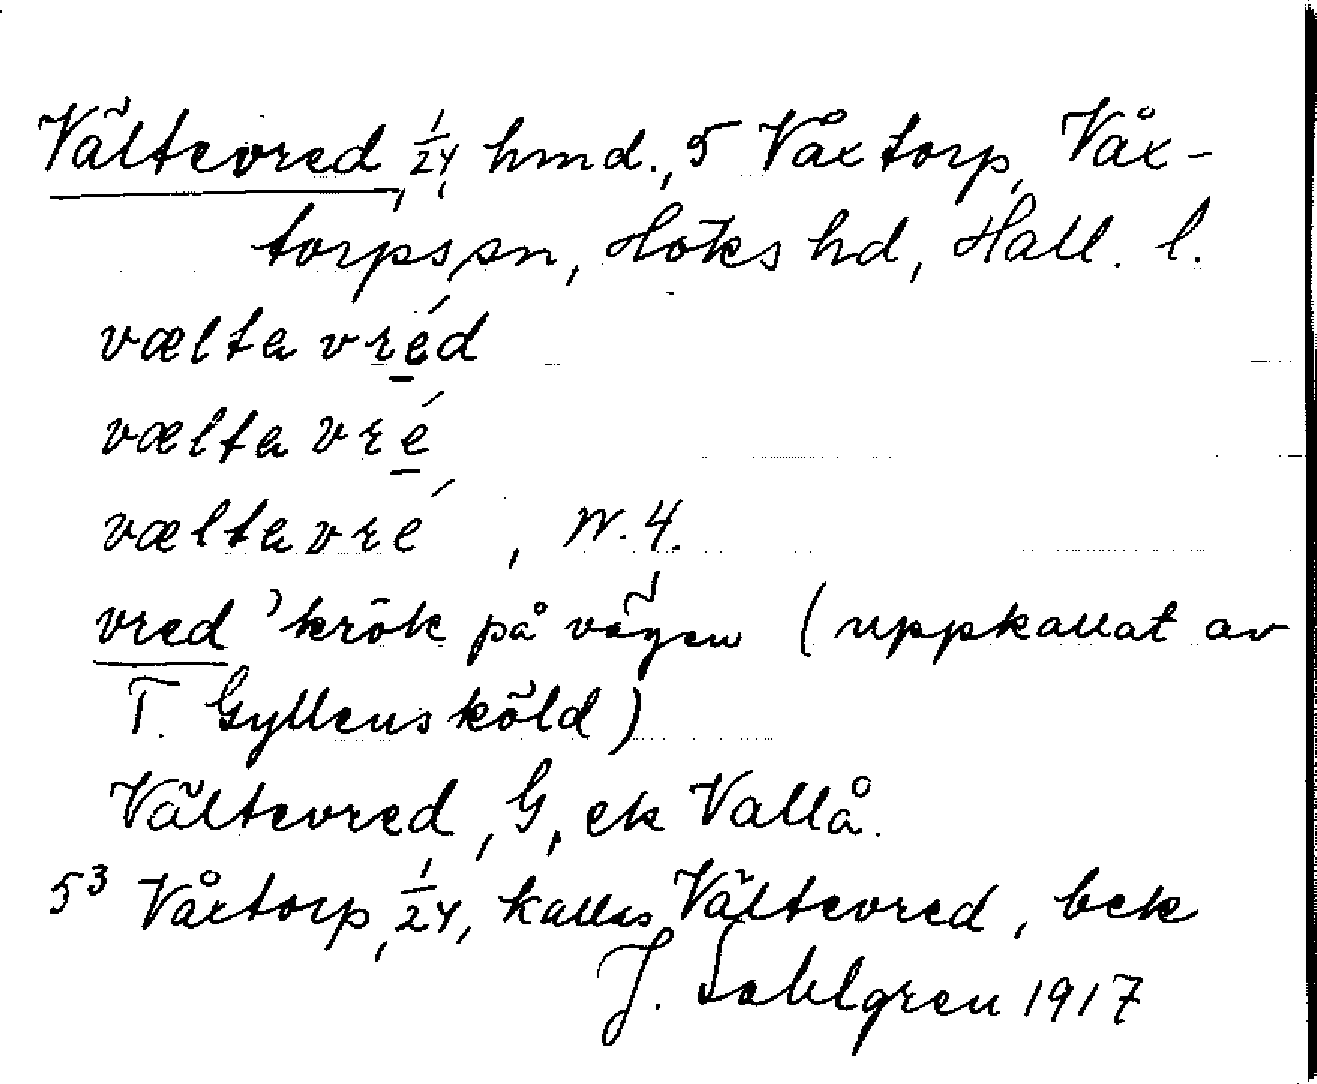 Vältevred, 1/24, hmd., 5 Våxtorp, Våx-
torps sn, Höks hd, Hall. l.
vælta vréd
vælta vré
vælta vré, W. 4.
vred 'krök på vägen (uppkallat av
T. Gyllensköld)
Vältevred, G, ek Vallå.
5³ Våxtorp, 1/24, kallas Vältevred, bek
J. Sahlgren 1917